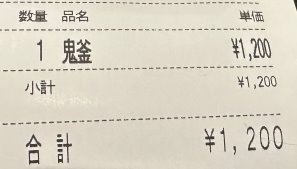 数量 品名 単価
1 鬼釜 ¥1,200
小計 ¥1,200
合計 ¥1,200